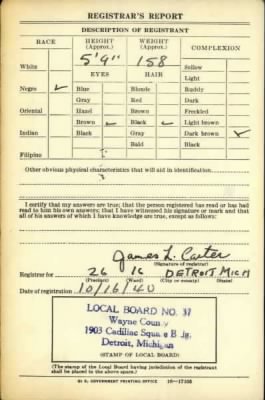 REGISTRAR'S REPORT
DESCRIPTION OF REGISTRANT
RACE HEIGHT (Approx.) WEIGHT (Approx.) COMPLEXION
White 5' 9" 158 Sallow
EYES HAIR Light
Negro ✓ Blue Blonde Ruddy
Gray Red Dark
Oriental Hazel Brown Freckled
Brown ✓ Black ✓ Light brown
Indian Black Gray Dark brown ✓
Bald Black
Filipino
Other obvious physical characteristics that will aid in identification
I certify that my answers are true; that the person registered has read or has had
read to him his own answers; that I have witnessed his signature or mark and that
all of his answers of which I have knowledge are true, except as follows:
James L. Carter
(Signature of registrar)
Registrar for 26 16 DETROIT MICH
(Precinct) (Ward) (City or county) (State)
Date of registration 10/16/40
LOCAL BOARD NO. 37
Wayne County
1903 Cadillac Square Bldg.
Detroit, Michigan
(STAMP OF LOCAL BOARD)
(The stamp of the Local Board having jurisdiction of the registrant
shall be placed in the above space.)
U. S. GOVERNMENT PRINTING OFFICE 16—17105